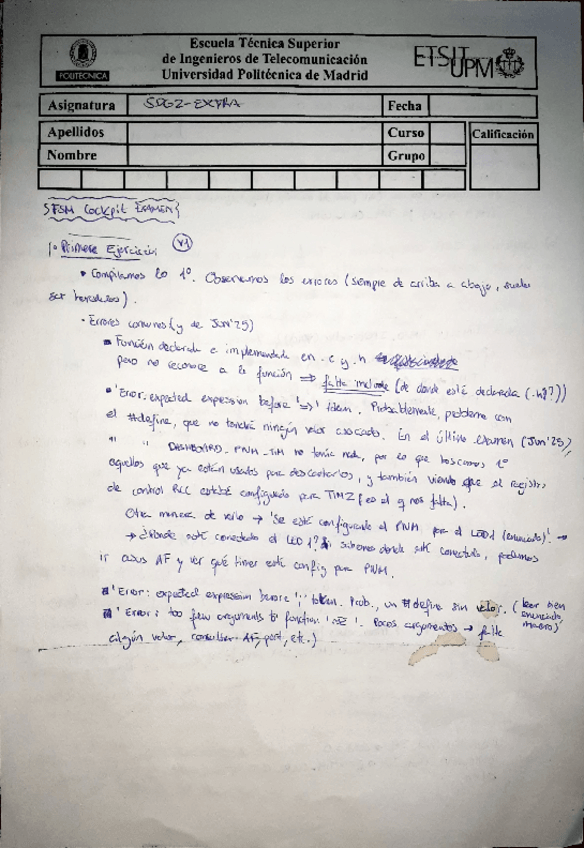 Escuela Técnica Superior
de Ingenieros de Telecomunicación
Universidad Politécnica de Madrid
POLITÉCNICA
ETSIT UPM
Asignatura SDG2-EXTRA Fecha
Apellidos Curso Calificación
Nombre Grupo
FSM Cockpit EXAMEN
1º Primer Ejercicio V1
• Compilamos lo 1º. Observamos los errores (siempre de arriba a abajo, suelen
ser heredados).
• Errores comunes (y de JUN'25)
Función declarada e implementada en .c y .h
pero no reconoce a la función ⇒ falta include (de donde está declarada (.h?))
'Error: expected expression before '=>' token. Probablemente, problema con
el #define, que no tendrá ningún valor asociado. En el último examen (Jun'25),
" " DASHBOARD_PWM_TIM no tenía nada, por lo que buscamos 1º
aquellos que ya están usados para descartarlos, y también viendo que el registro
de control RCC estaba configurado para TIM2 (es el q nos falta).
Otra manera de verlo → 'Se está configurando el PWM por el LED1 (enunciado)'. →
→ ¿Dónde está conectado el LED1? Si sabemos donde está conectado, podemos
ir a sus AF y ver qué timer está config para PWM.
'Error: expected expression before ';' token. Prob., un #define sin valor. (leer bien
enunciado,
'Error: too few arguments to function '. Pocos argumentos → falta
algún valor, consultar AF, port, etc.)